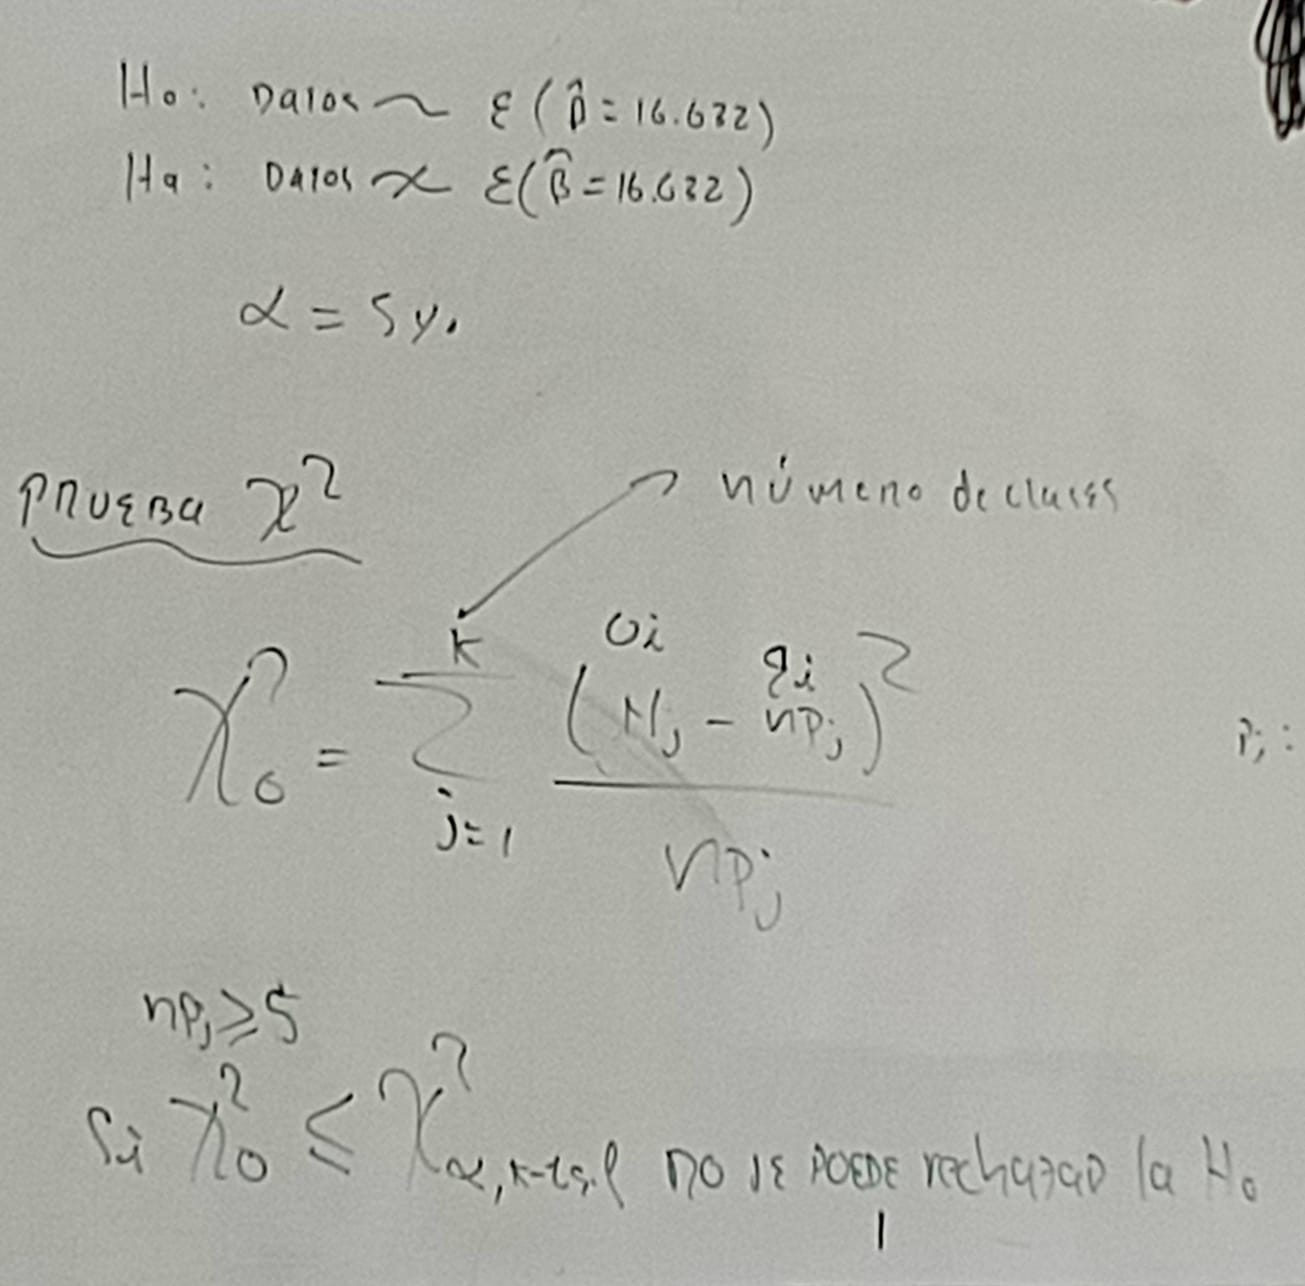 H₀: Datos ~ ε(β̂ = 16.632)
Ha: Datos ≁ ε(β̂ = 16.632)
α = 5%
Prueba χ²
número de clases
k
oi
qi
χ₀² = Σ (Nj - npj)²
j=1
npj
Pj:
npj ≥ 5
Si χ₀² ≤ χ² α, k-1 g.l no se puede rechazar la H₀